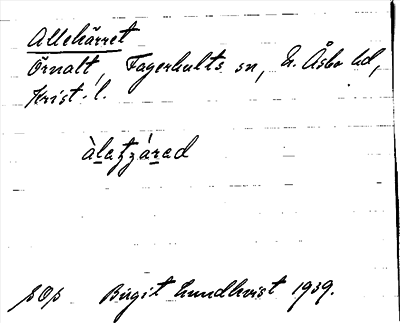 Allehärret
Örnalt, Fagerhults sn, N. Åsbo hd,
Krist. l.
àlaʒʒárad
sOp Birgit Lundkvist 1939.